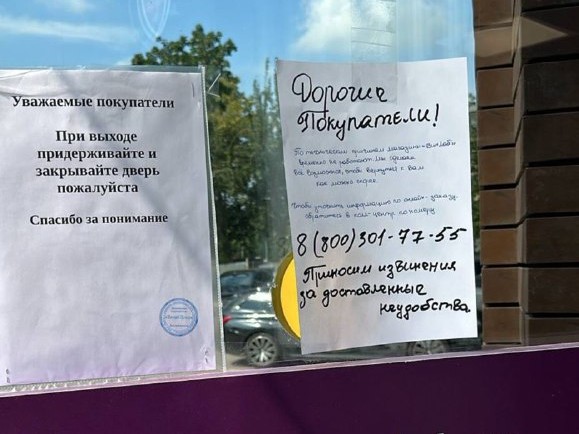 Уважаемые покупатели
При выходе
придерживайте и
закрывайте дверь
пожалуйста
Спасибо за понимание
Дорогие
Покупатели!
По техническим причинам магазины «ВинЛаб»
временно не работают. Мы делаем
всё возможное, чтобы вернуться к вам
как можно скорее.
Чтобы уточнить информацию по онлайн-заказу,
обратитесь в кол-центр по номеру
8(800)301-77-55
Приносим извинения
за доставленные
неудобства.